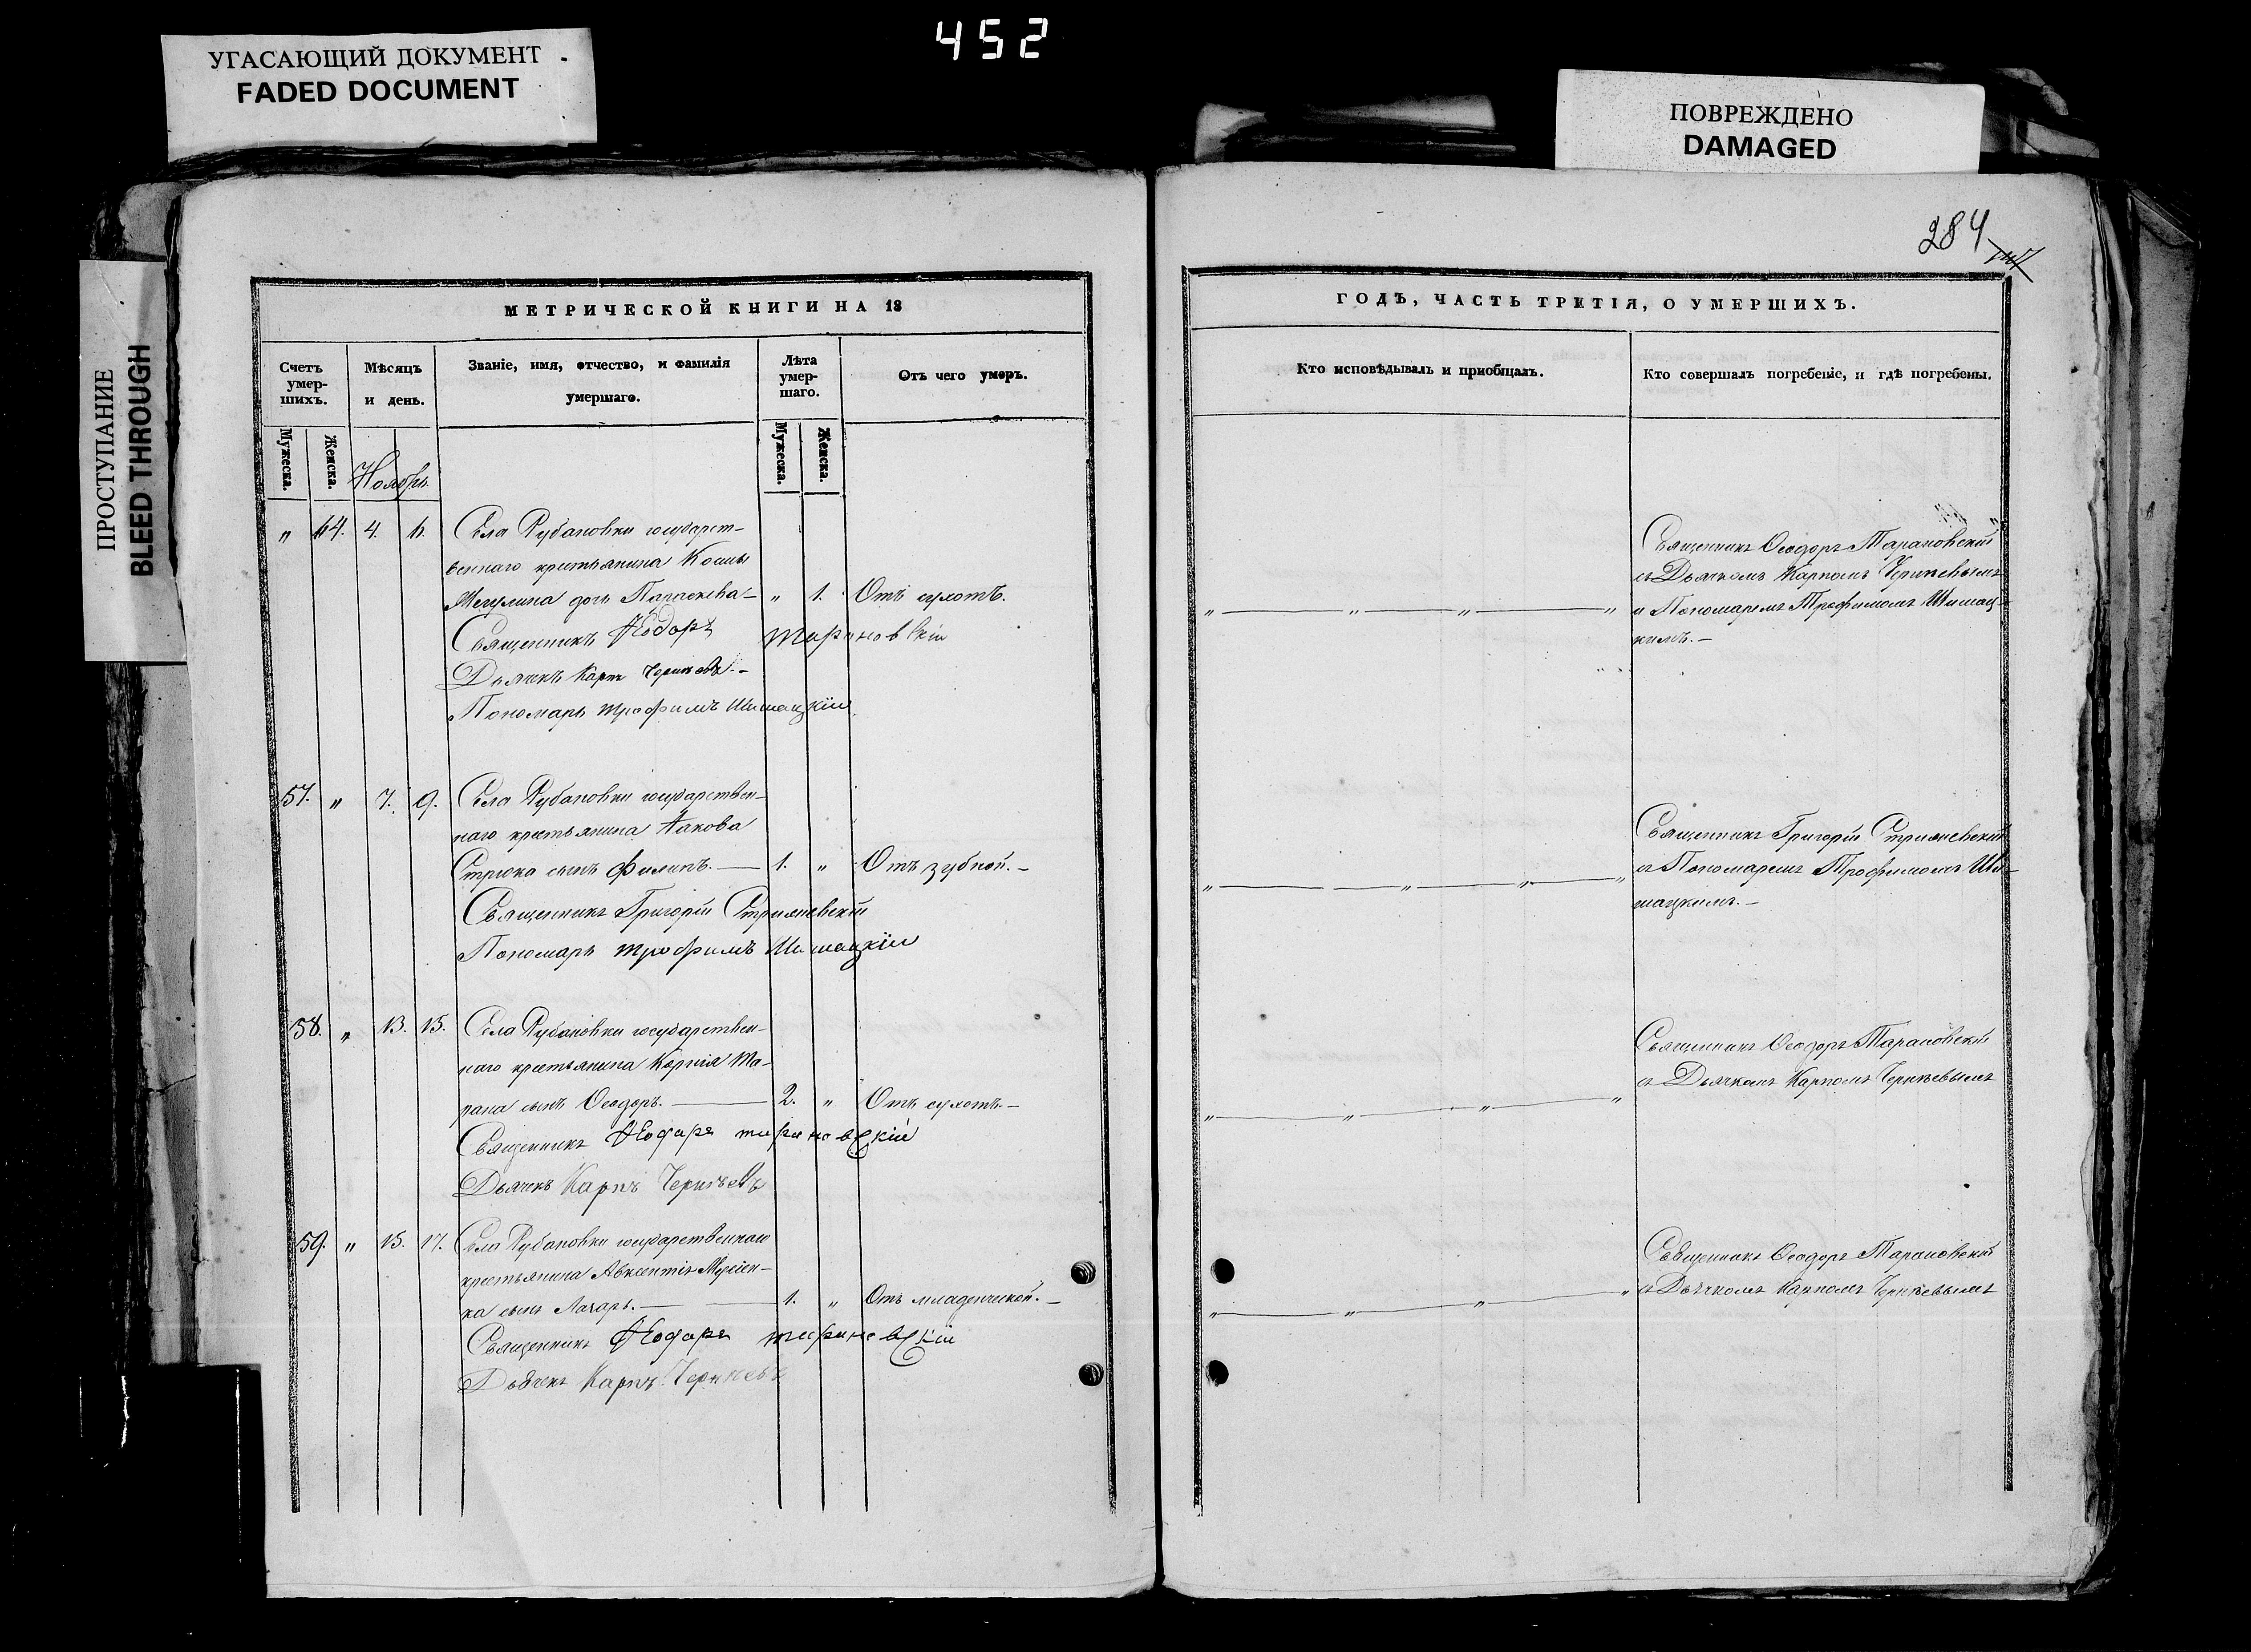 452
УГАСАЮЩИЙ ДОКУМЕНТ
FADED DOCUMENT
ПОВРЕЖДЕНО
DAMAGED
ПРОСТУПАНИЕ
BLEED THROUGH
284
МЕТРИЧЕСКОЙ КНИГИ НА 18
Счетъ умер-шихъ.
Мѣсяцъ и день.
Званіе, имя, отчество, и фамилія умершаго.
Лѣта умер-шаго.
Отъ чего умеръ.
Мужеска.
Женска.
Ноябрь
Мужеска.
Женска.
„ 64. 4. 6. Села Рубановки государст-
веннаго крестьянина Космы
дочь Параскева — „ 1. Отъ сухотъ.
Священникъ Ѳеодоръ Тарановскій
Дьячекъ Карпъ
Пономарь Трофимъ Шишацкій
57. „ 7. 9. Села Рубановки государствен-
наго крестьянина Іакова
Стрюка сынъ Филипъ. — 1. „ Отъ зубной. –
Священникъ Григорій
Пономарь Трофимъ Шишацкій
58. „ 13. 15. Села Рубановки государствен-
наго крестьянина Корнія Та-
рана сынъ Ѳеодоръ. — 2. „ Отъ сухотъ. –
Священникъ Ѳеодоръ Тарановскій
Дьячекъ Карпъ
59. „ 15. 17. Села Рубановки государственнаго
крестьянина Авксентія
ка сынъ Лазарь. — 1. „ Отъ младенческой. –
Священникъ Ѳеодоръ Тарановскій
Дьячекъ Карпъ
ГОДЪ, ЧАСТЬ ТРЕТІЯ, О УМЕРШИХЪ.
Кто исповѣдывалъ и пріобщалъ.
Кто совершалъ погребеніе, и гдѣ погребены.
Священникъ Ѳеодоръ Тарановскій
съ Дьячкомъ Карпомъ
„ — „ — „ — „ и Пономаремъ Трофимомъ Шишац-
кимъ. –
Священникъ Григорій
„ — „ — „ — „ съ Пономаремъ Трофимомъ Ши-
шацкимъ. –
Священникъ Ѳеодоръ Тарановскій
съ Дьячкомъ Карпомъ
„ — „ — „ — „
Священникъ Ѳеодоръ Тарановскій
„ — „ — „ — „ съ Дьячкомъ Карпомъ